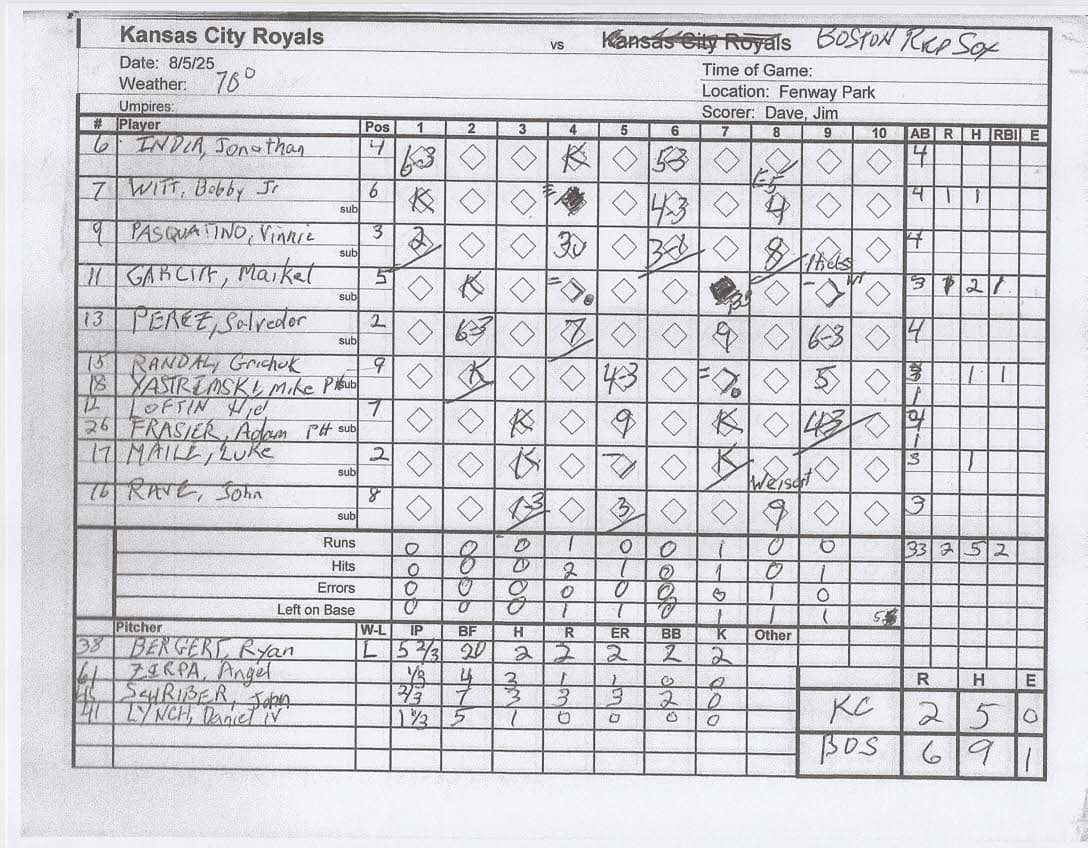 Kansas City Royals vs Kansas City Royals BOSTON RED SOX
Date: 8/5/25
Weather: 78°
Time of Game:
Location: Fenway Park
Umpires:
Scorer: Dave, Jim
# Player Pos 1 2 3 4 5 6 7 8 9 10 AB R H RBI E
6 INDIA, Jonathan 4 6-3 K 5-3 E-5 4
7 WITT, Bobby Jr 6 K 4-3 4 4 1 1
sub
9 PASQUATINO, Vinnie 3 2 3U 3-1 8 4
sub
Hicks
11 GARCIA, Maikel 5 K 3 1 2 1
sub
13 PEREZ, Salvedor 2 6-3 7 9 6-3 4
sub
15 RANDAL, Grichuk 9 K 4-3 5 3 1 1
18 YASTREMSKI, Mike PH sub 1
12 LOFTIN 7 K 9 K 4-3 4
26 FRASIER, Adam PH sub 1
17 MAILE, Luke 2 K K 3 1
sub
Weisert
16 RAVE, John 8 1-3 3 9 3
sub
Runs 0 0 0 1 0 0 1 0 0 33 2 5 2
Hits 0 0 0 2 1 0 1 0 1
Errors 0 0 0 0 0 0 0 1 0
Left on Base 0 0 0 1 1 0 1 1 1 5
Pitcher W-L IP BF H R ER BB K Other
38 BERGERT, Ryan L 5 2/3 20 2 2 2 2 2
61 ZERPA, Angel 1/3 4 3 1 1 0 0
SCHRIBER, John 2/3 7 3 3 3 2 0
41 LYNCH, Daniel IV 1 1/3 5 1 0 0 0 0
R H E
KC 2 5 0
BOS 6 9 1